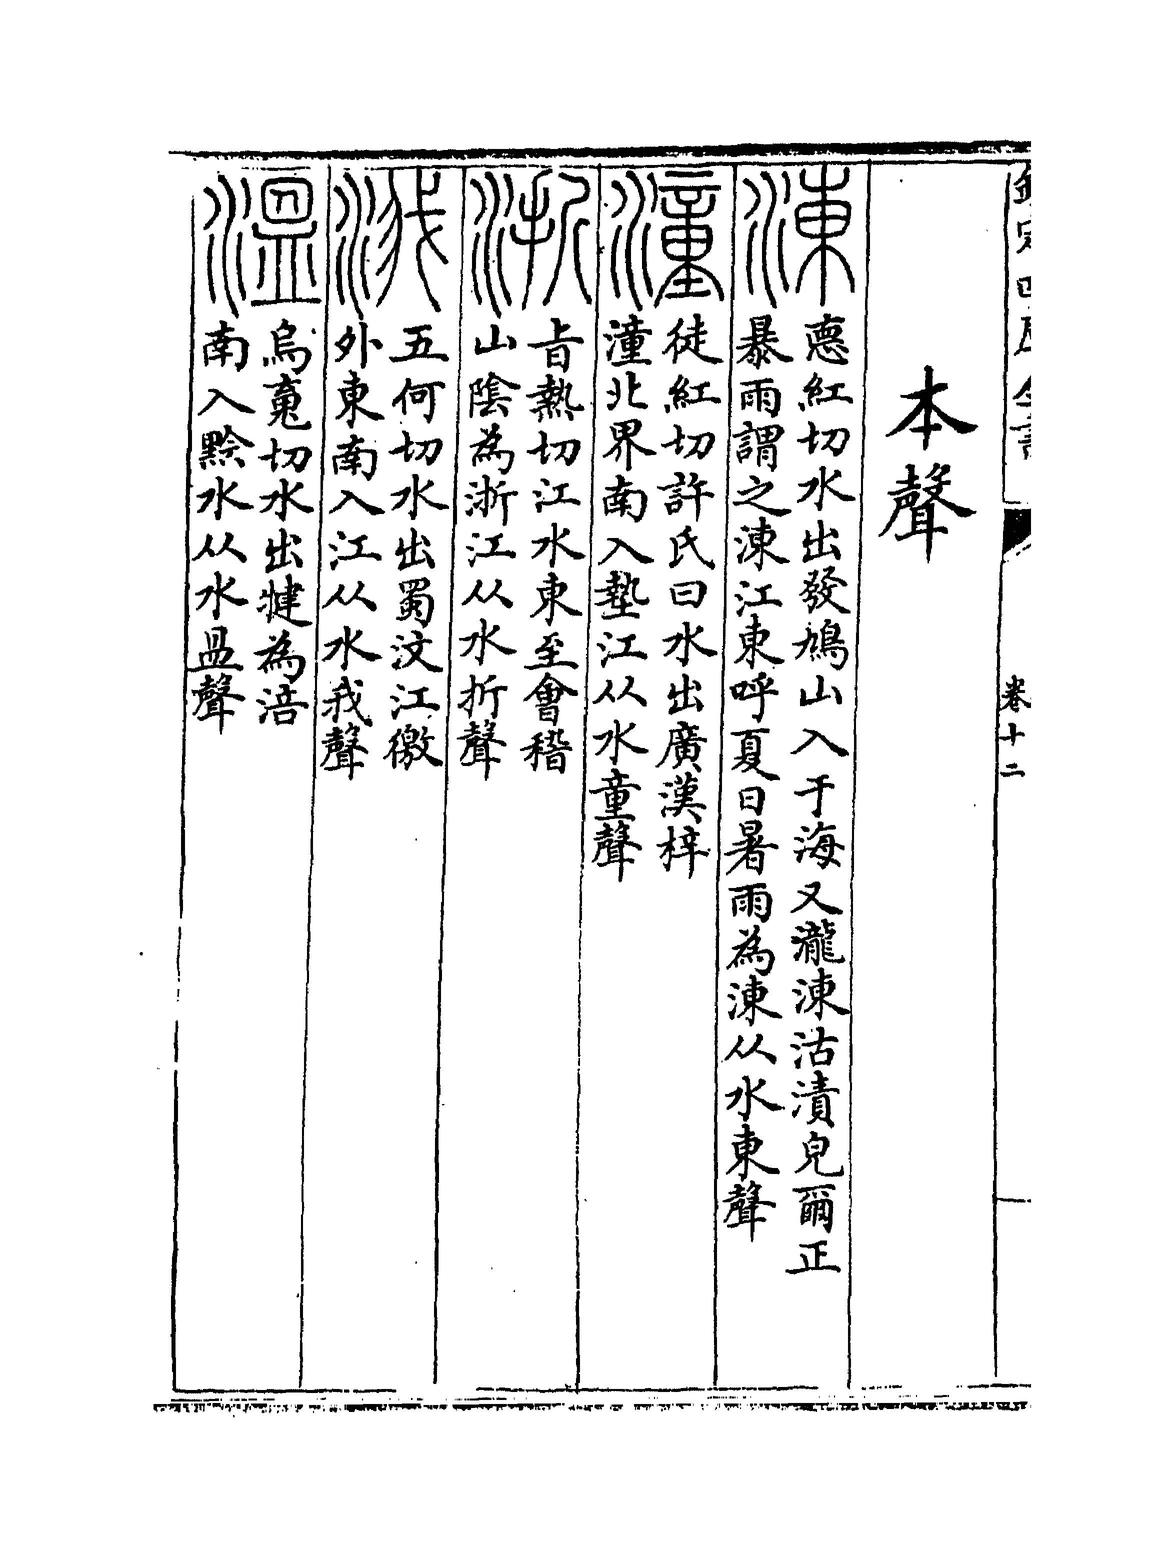 欽定四庫全書
卷十二
本聲
涷
悳紅切水出發鳩山入于海又瀧涷沾漬皃爾正
暴雨謂之涷江東呼夏日暑雨為涷从水東聲
潼
徒紅切許氏曰水出廣漢梓
潼北界南入墊江从水童聲
浙
旨熱切江水東至會稽
山隂為浙江从水折聲
涐
五何切水出蜀汶江徼
外東南入江从水我聲
溫
烏䰟切水出犍為涪
南入黔水从水昷聲